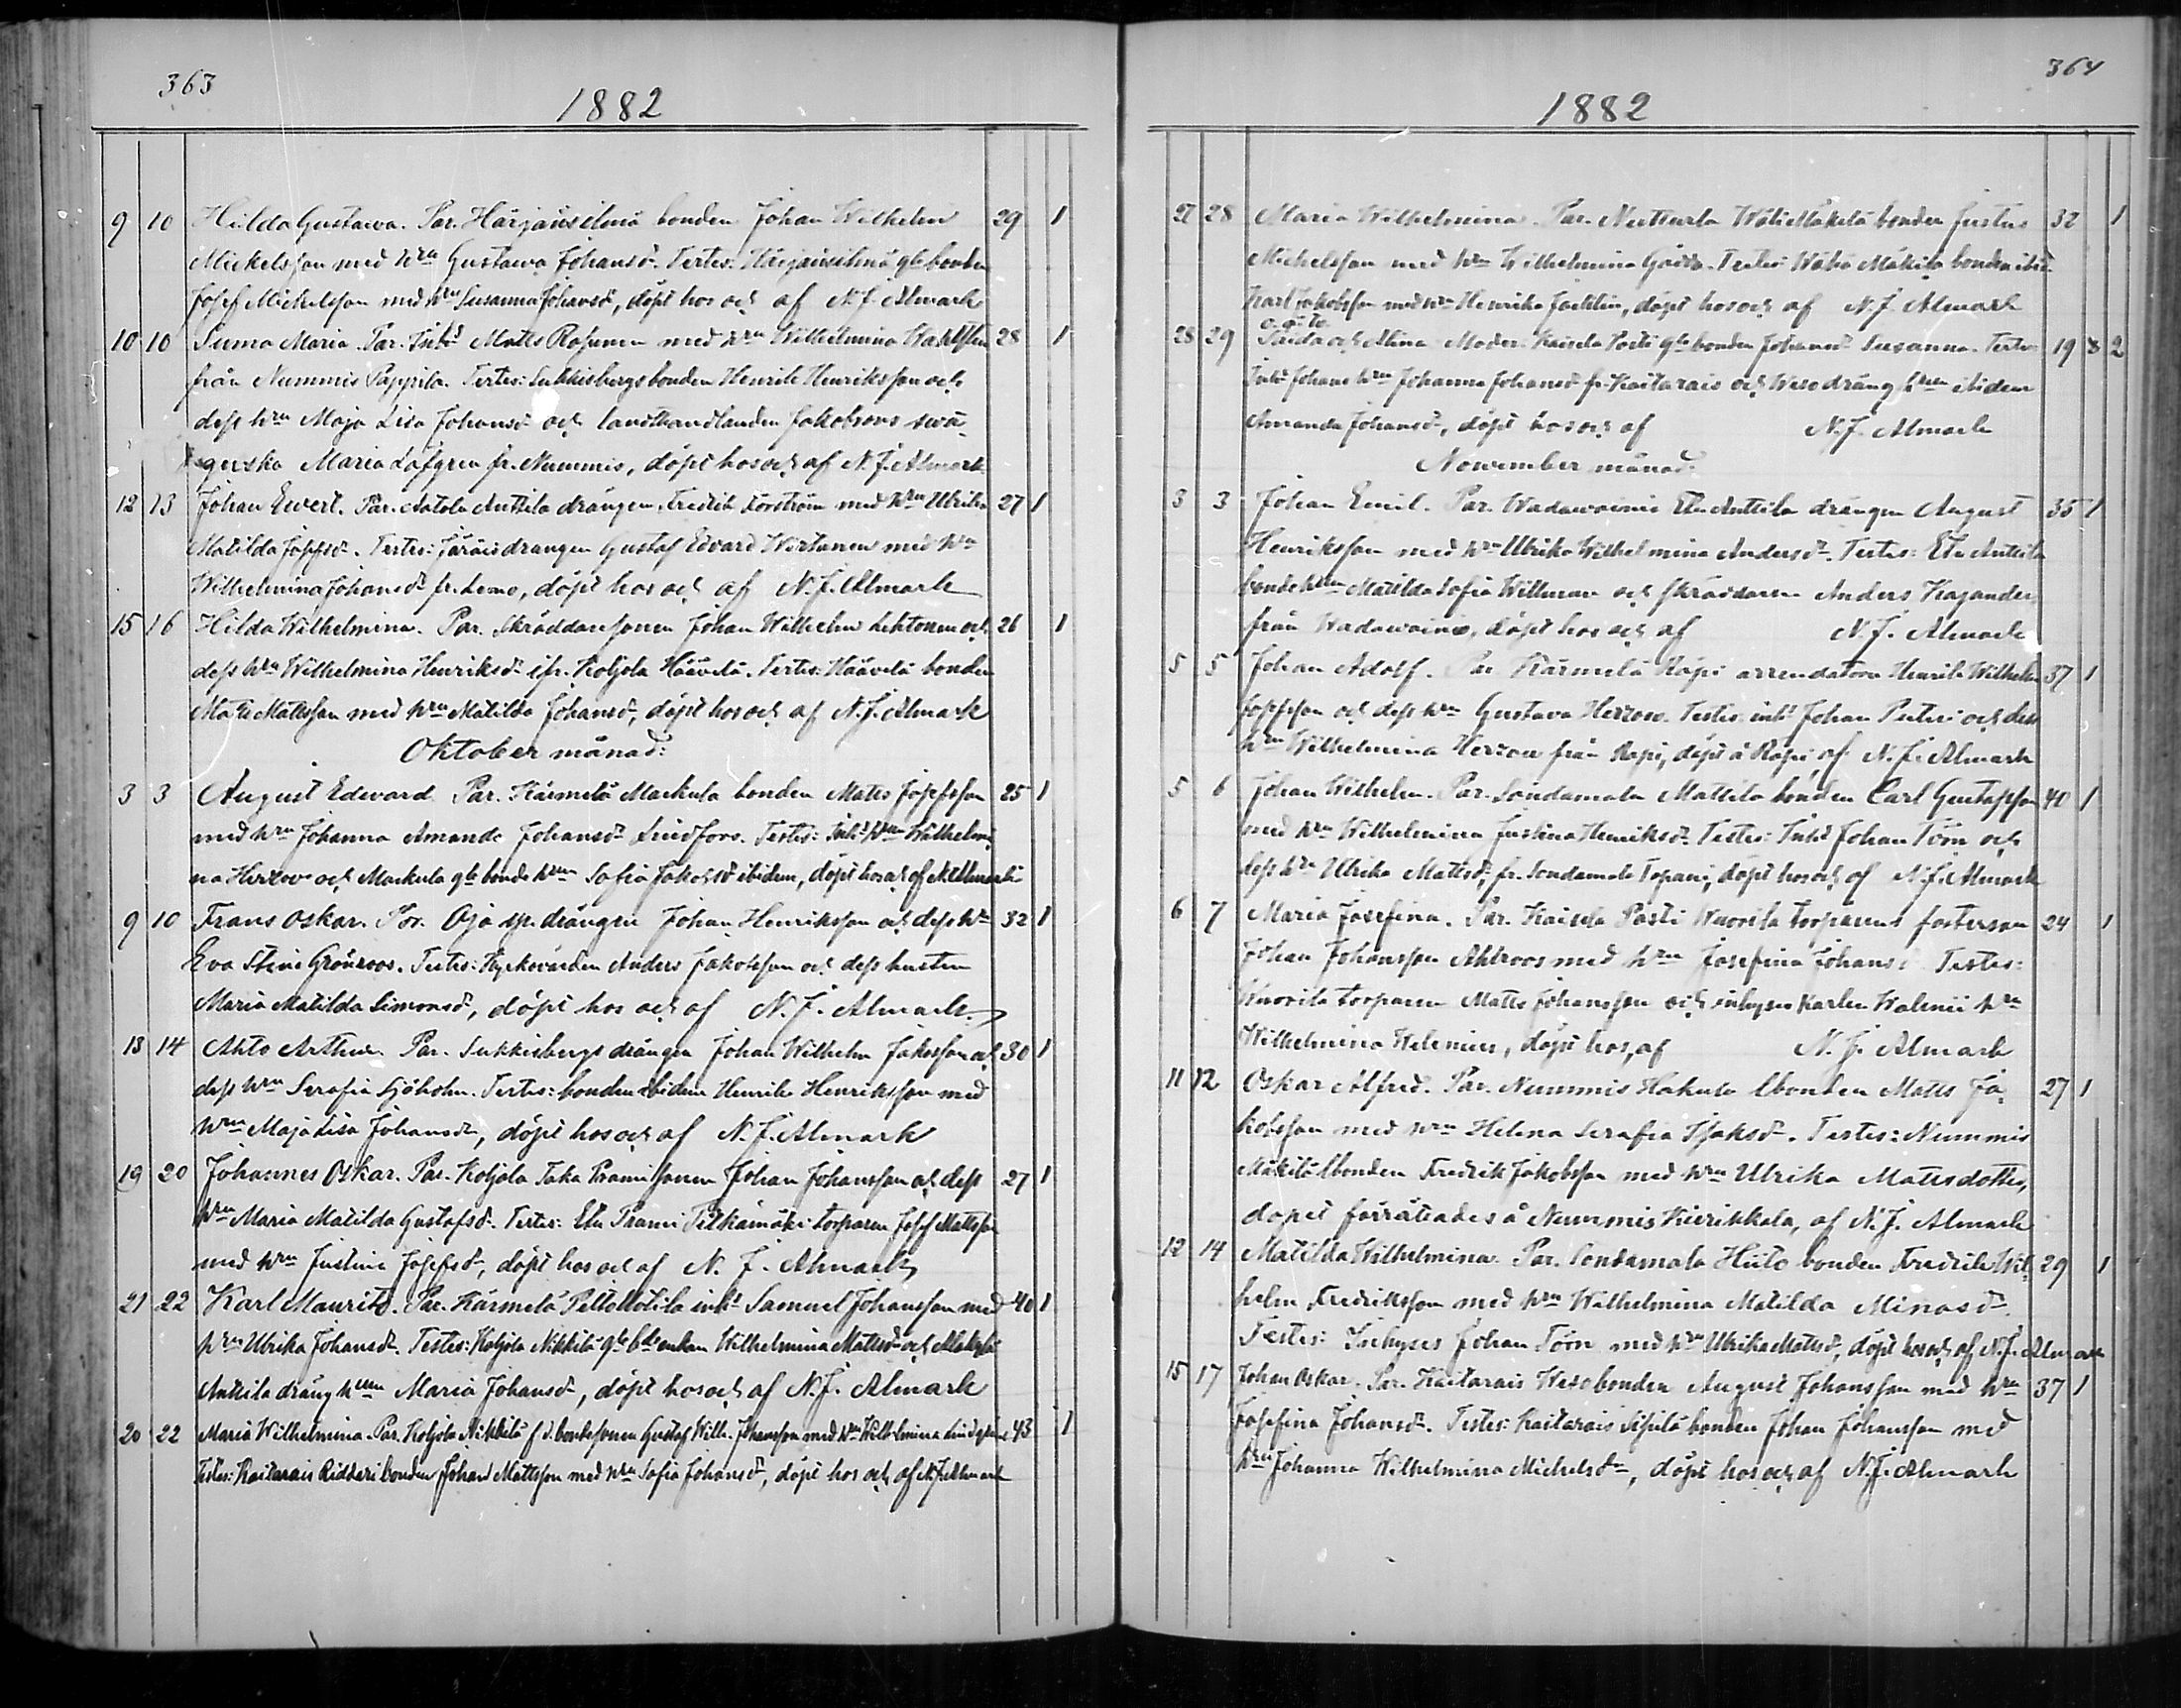 363
1882
9 10 Hilda Gustawa. Par. Härjänsilmä bonden Johan Wilhelm 29 1
Mickelsson med hru Gustawa Johansdr. Testes: Härjänsilmä gle bonden
Josef Michelsson med hru Susanna Johansdr, döpt hos och af N. J. Almark
10 10 Suma Maria. Par. Inhs Matts Rosunen med hru Wilhelmina 28 1
från Nummis Pappila. Testes: Sukkisbergs bonden Henrik Henriksson och
dess hru Maja Lisa Johansdr och landthandlanden Jakobsons swä-
gerska Maria Lofgren fr. Nummis, döpt hos och af N. J. Almark
12 13 Johan Ewert. Par. Aatola Anttila drängen Fredrik Forström med hru Ulrika 27 1
Matilda Josefsdr. Testes: Järäis drängen Gustaf Edvard Wirtanen med hru
Wilhelmina Johansdr fr. Lemo, döpt hos och af N. J. Almark
15 16 Hilda Wilhelmina. Par. Skräddaresonen Johan Wilhelm Lehtonen och 26 1
dess hru Wilhelmina Henriksdr ifr. Koljola Häävelä. Testes: Häävelä bonden
Matts Mattsson med hru Matilda Johansdr, döpt hos och af N. J. Almark
Oktober månad:
3 3 August Edward. Par. Kärmelä Markula bonden Matts Josefsson 25 1
med hru Johanna Amanda Johansdr Lindfors. Testes: Inhs hrun Wilhelmi-
na Herzow och Markula gle bonde hrun Sofia Jakobsdr ibidem, döpt hos och af N. J. Almark
9 10 Frans Oskar. Par. Oja sp. drängen Johan Henriksson och dess hru 32 1
Eva Stina Grönroos. Testes: Kyrkovärden Anders Jakobsson och dess hustru
Maria Matilda Simonsdr, döpt hos och af N. J. Almark
13 14 Ahto Arthur. Par. Sukkisbergs drängen Johan Wilhelm Jakosson och 30 1
dess hru Serafia Sjöholm. Testes: bonden ibidem Henrik Henriksson med
hru Maja Lisa Johansdr, döpt hos och af N. J. Almark
19 20 Johannes Oskar. Par. Koljola Taka Prami sonen Johan Johansson och dess 27 1
hru Maria Matilda Gustafsdr. Testes: Etu Prami Pitkämäki torparen Josef Mattsson
med hru Justina Josefsdr, döpt hos och af N. J. Almark
21 22 Karl Maurits. Par. Kärmelä inhs Samuel Johansson med 40 1
hru Ulrika Johansdr. Testes: Koljola Nikkilä gle bde enkan Wilhelmina Mattsdr och
Anttila dräng hrun Maria Johansdr, döpt hos och af N. J. Almark
20 22 Maria Wilhelmina. Par. Koljola Nikkilä f. d. bondsonen Gustaf Wilh. Johansson med hru Wilhelmina 43 1
Testes: Kaitarais Ridderi bonden Johan Mattsson med hru Sofia Johansdr, döpt hos och af N. J. Almark
364
1882
27 28 Maria Wilhelmina. Par. Nutturla bonden Justus 32 1
Michelsson med hru Wilhelmina. Testes: Wähä Mäkilä bonden ibid.
Karl Jakobsson med hru Henrika, döpt hos och af N. J. Almark
o. äkta
28 29 och Alina. Moder: Kaisela Posti gle bonden Johansdr Susanna. Testes: 19 2
Inhs Johans hru Johanna Johansdr fr. Kaitarais och Weso dräng hrun ibidem
Amanda Johansdr, döpt hos och af N. J. Almark
Nowember månad:
3 3 Johan Emil. Par. Wadawainio Etu Anttila drängen August 35 1
Henriksson med hru Ulrika Wilhelmina Andersdr. Testes: Etu Anttila
bonde hrun Matilda Sofia Willman och skräddaren Anders Kajander
från Wadawainio, döpt hos och af N. J. Almark
5 5 Johan Adolf. Par. Kärmelä Räpi arrendatorn Henrik Wilhelm 37 1
Josefsson och dess hru Gustava Herzow. Testes: inhs Johan Peteri och dess
hru Wilhelmina Herzow från Räpi, döpt å Räpi, af N. J. Almark
5 6 Johan Wilhelm. Par. Sondamala Mattila bonden Carl Gustafsson 40 1
med hru Wilhelmina Justina Henriksdr. Testes: Inhs Johan Törn och
dess hru Ulrika Mattsdr, fr. Sondamala Topani, döpt hos och af N. J. Almark
6 7 Maria Josefina. Par. Kaisela Posti Wuorila torparens fosterson 24 1
Johan Johansson Ahlroos med hru Josefina Johansd. Testes:
Wuorila torparen Matts Johansson och inhyses karlen Walmii hru
Wilhelmina Helenius, döpt hos, af N. J. Almark
11 12 Oskar Alfred. Par. Nummis Hakula bonden Matts Ja- 27 1
kobsson med hru Helena Serafia Isaksdr. Testes: Nummis
Mäkilä bonden Fredrik Jakobsson med hru Ulrika Mattsdotter,
dopet förrättades å Nummis Kierikkala, af N. J. Almark
12 14 Matilda Wilhelmina. Par. Sondamala Hiito bonden Fredrik Wil- 29 1
helm Fredriksson med hru Wilhelmina Matilda Minasdr.
Testes: Inhyses Johan Törn med hru Ulrika Mattsd, döpt hos och af N. J. Almark
15 17 Johan Oskar. Par. Kaitarais Weso bonden August Johansson med hru 37 1
Josefina Johansdr. Testes: Kaitarais Sipilä bonden Johan Johansson med
hru Johanna Wilhelmina Michelsdr, döpt hos och af N. J. Almark